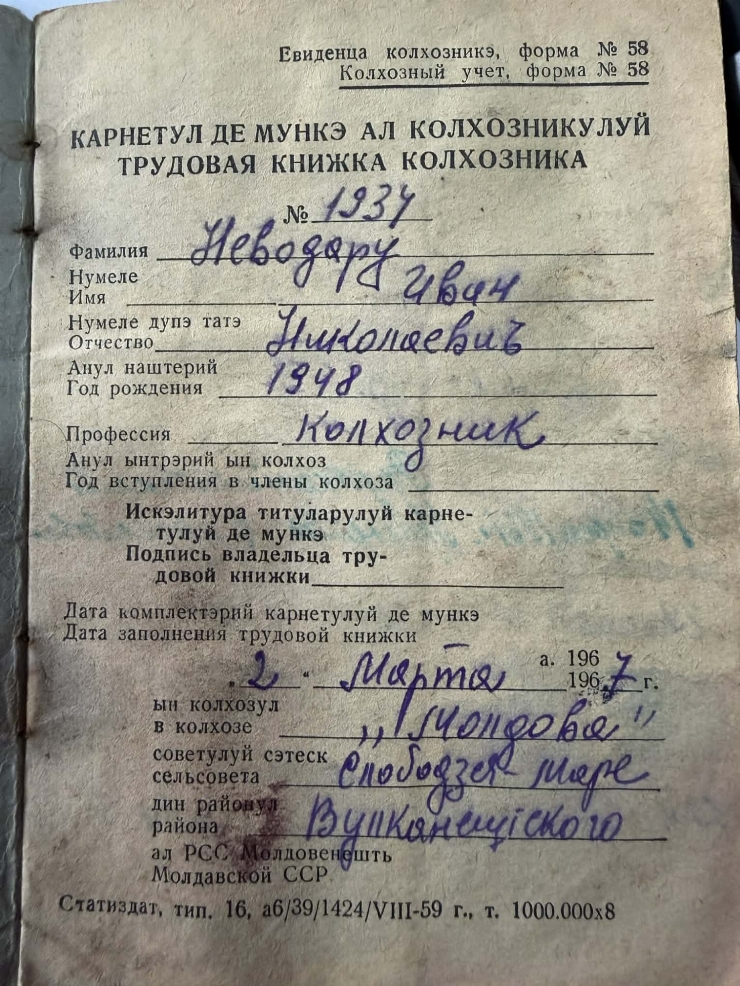 Евиденца колхозникэ, форма № 58
Колхозный учет, форма № 58
КАРНЕТУЛ ДЕ МУНКЭ АЛ КОЛХОЗНИКУЛУЙ
ТРУДОВАЯ КНИЖКА КОЛХОЗНИКА
№ 1937
Фамилия Неводару
Нумеле
Имя Иван
Нумеле дупэ татэ
Отчество Николаевич
Анул наштерий
Год рождения 1948
Профессия Колхозник
Анул ынтрэрий ын колхоз
Год вступления в члены колхоза
Искэлитура титуларулуй карне-
тулуй де мункэ
Подпись владельца тру-
довой книжки
Дата комплектэрий карнетулуй де мункэ
Дата заполнения трудовой книжки
а. 196
„2“ Марта 1967 г.
ын колхозул
в колхозе „Молдова"
советулуй сэтеск
сельсовета Слободзея-Маре
дин районул
района Вулканештского
ал РСС Молдовенешть
Молдавской ССР
Статиздат, тип. 16, а6/39/1424/VIII-59 г., т. 1000.000х8